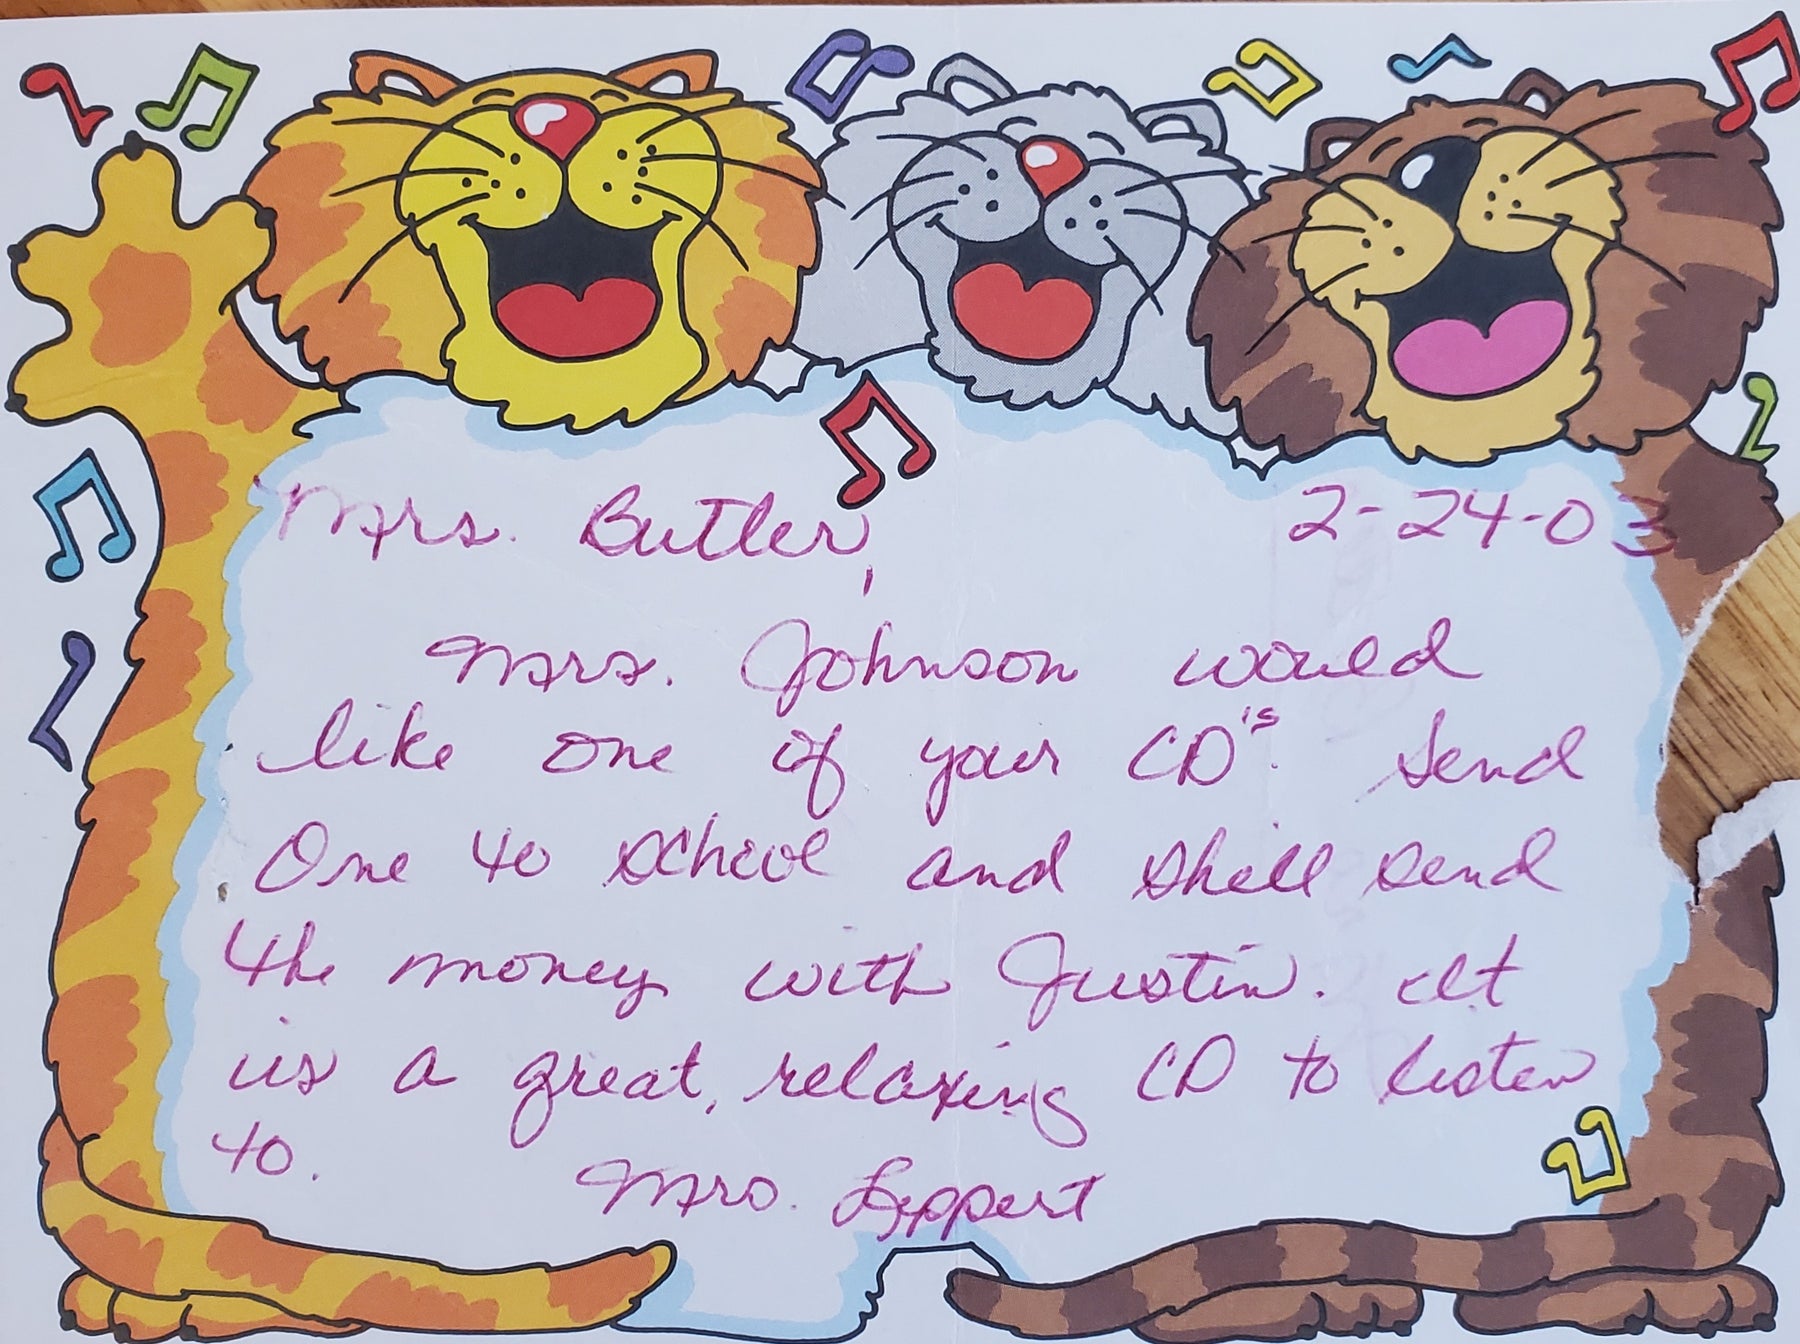 Mrs. Butler, 2-24-03
Mrs. Johnson would
like one of your CD's. Send
One to school and she'll send
the money with Justin. It
is a great, relaxing CD to listen
to.
Mrs. Leppert